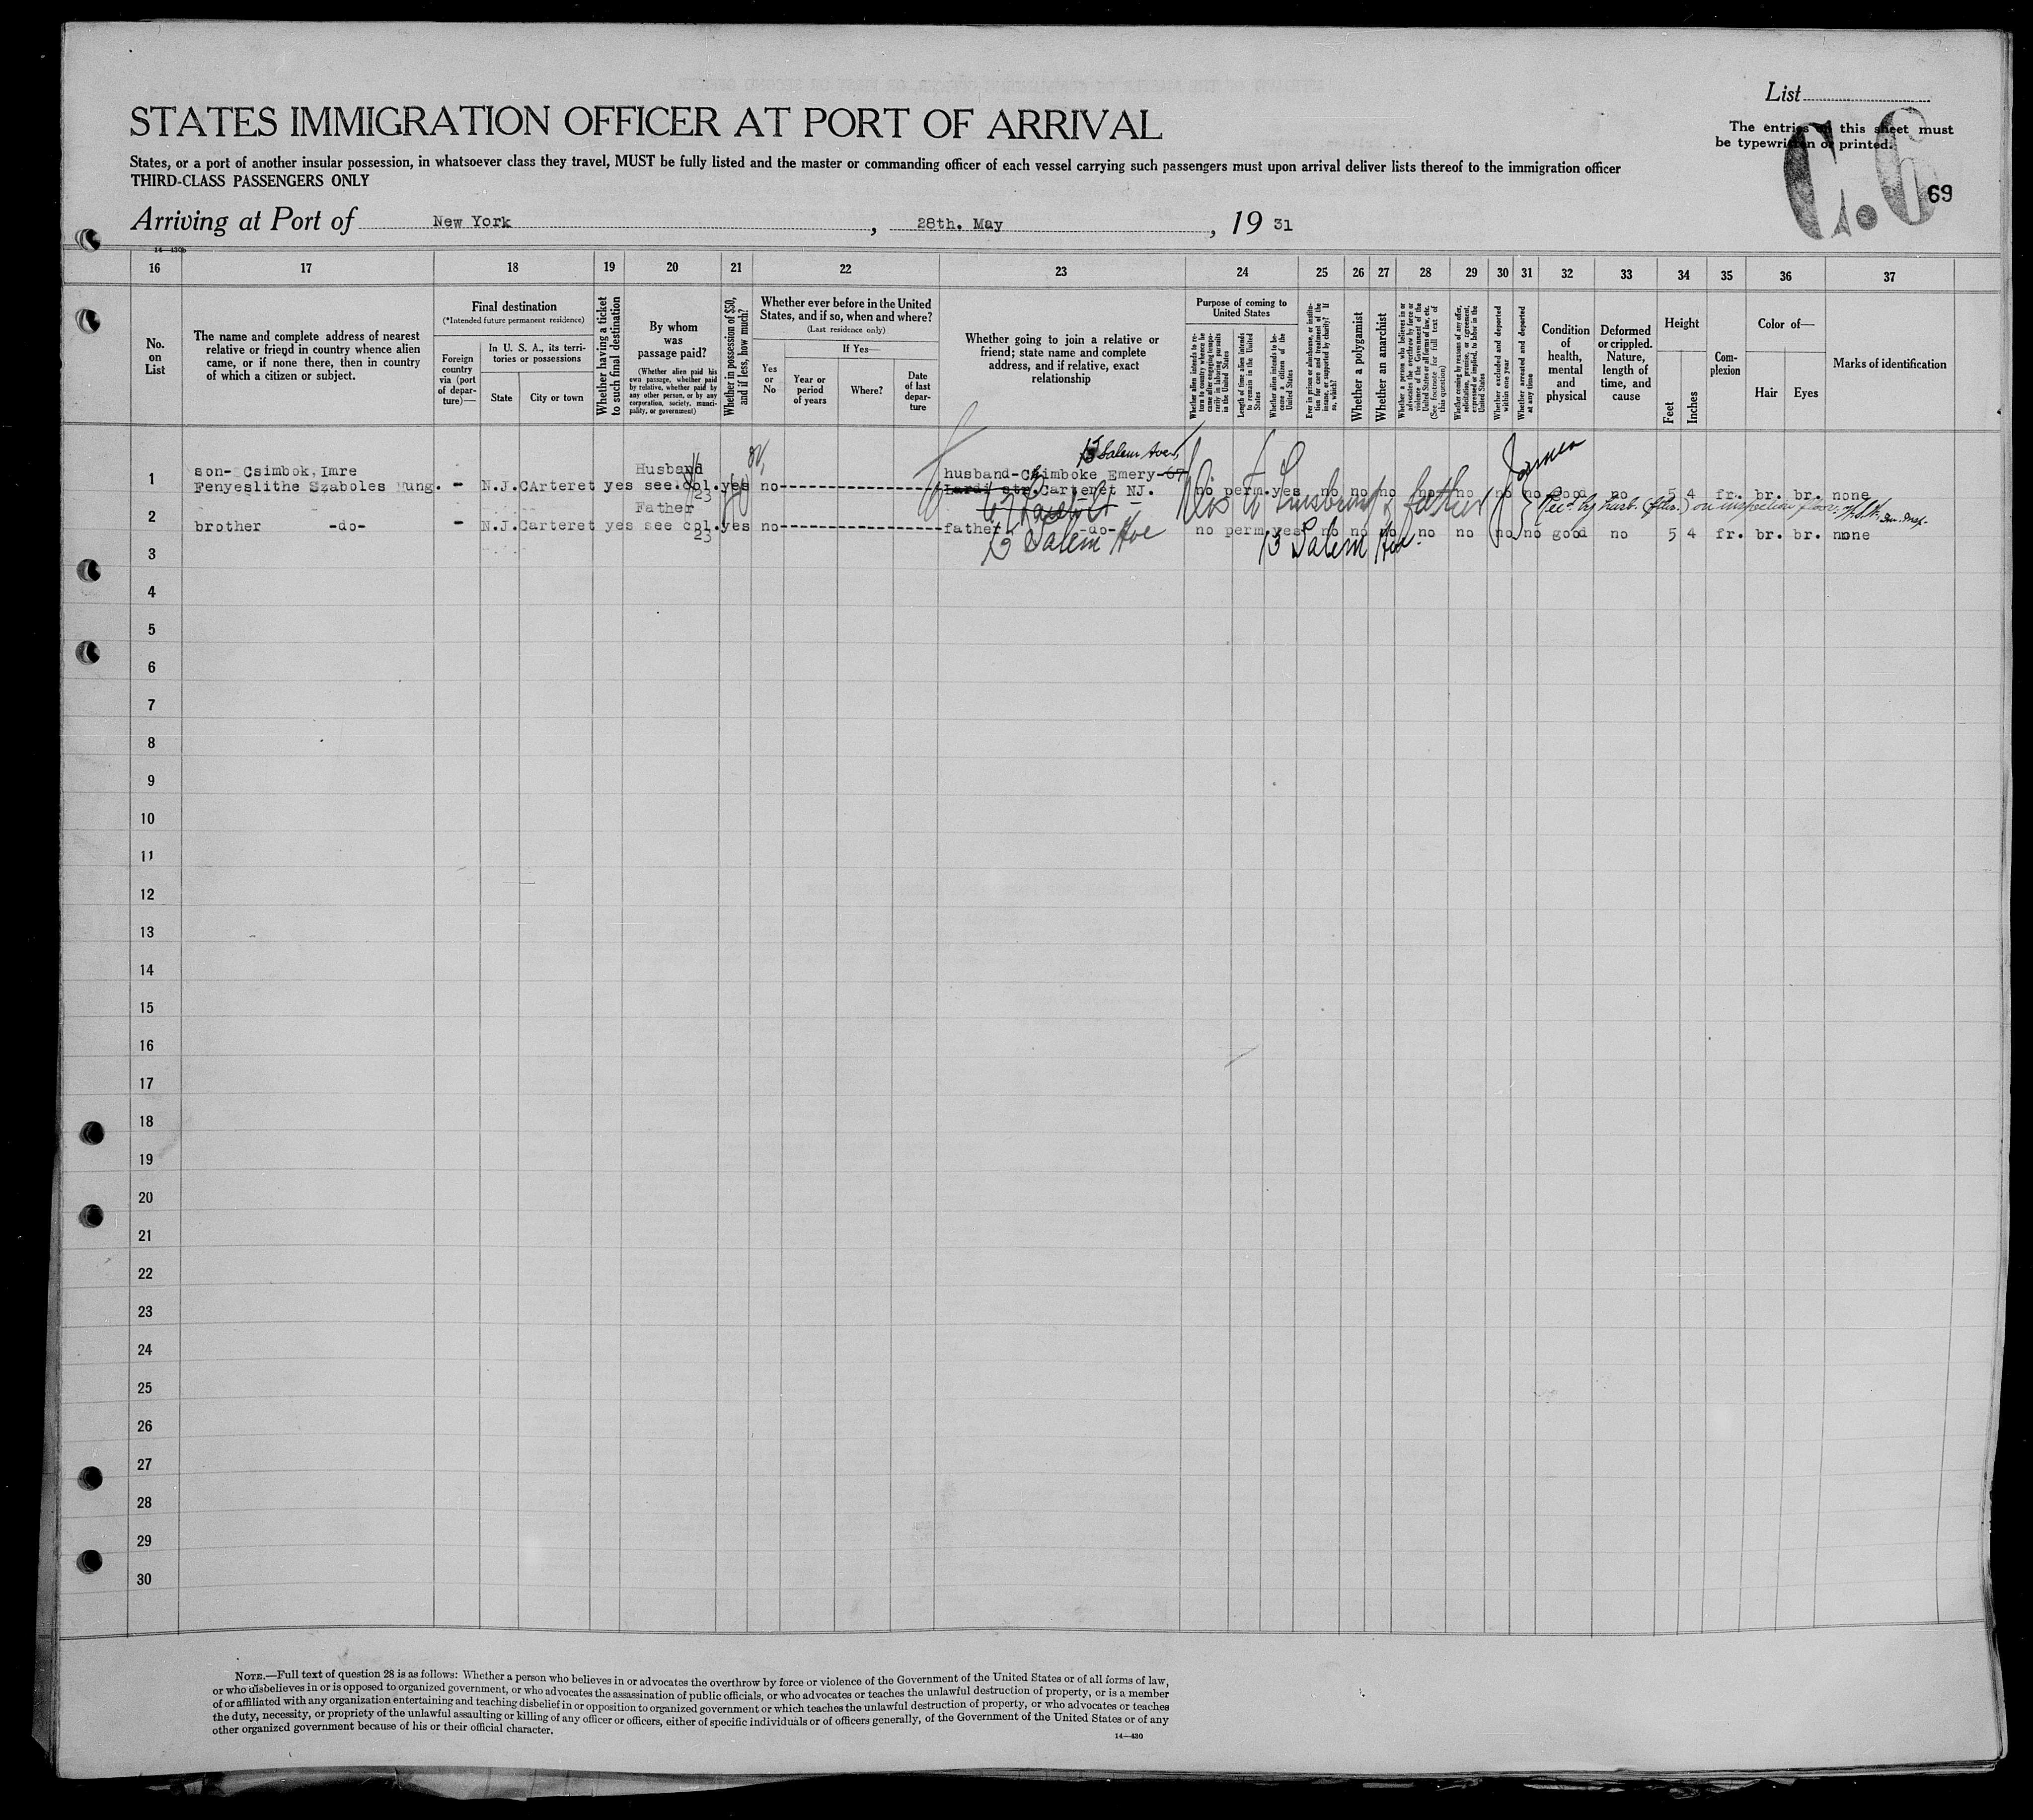 List
STATES IMMIGRATION OFFICER AT PORT OF ARRIVAL
The entries on this sheet must
be typewritten or printed.
C.6
69
States, or a port of another insular possession, in whatsoever class they travel, MUST be fully listed and the master or commanding officer of each vessel carrying such passengers must upon arrival deliver lists thereof to the immigration officer
THIRD-CLASS PASSENGERS ONLY
Arriving at Port of New York, 28th. May, 19 31
14—430b
16 17 18 19 20 21 22 23 24 25 26 27 28 29 30 31 32 33 34 35 36 37
No.
on
List
The name and complete address of nearest
relative or friend in country whence alien
came, or if none there, then in country
of which a citizen or subject.
Final destination
(*Intended future permanent residence)
Foreign
country
via (port
of depar-
ture)—
In U. S. A., its terri-
tories or possessions
State
City or town
Whether having a ticket
to such final destination
By whom
was
passage paid?
(Whether alien paid his
own passage, whether paid
by relative, whether paid by
any other person, or by any
corporation, society, munici-
pality, or government)
Whether in possession of $50,
and if less, how much?
Whether ever before in the United
States, and if so, when and where?
(Last residence only)
Yes
or
No
If Yes—
Year or
period
of years
Where?
Date
of last
depar-
ture
Whether going to join a relative or
friend; state name and complete
address, and if relative, exact
relationship
Purpose of coming to
United States
Whether alien intends to re-
turn to country whence he
came after engaging tempo-
rarily in laboring pursuits
in the United States
Length of time alien intends
to remain in the United
States
Whether alien intends to be-
come a citizen of the
United States
Ever in prison or almshouse, or institu-
tion for care and treatment of the
insane, or supported by charity? If
so, which?
Whether a polygamist
Whether an anarchist
Whether a person who believes in or
advocates the overthrow by force or
violence of the Government of the
United States or all forms of law, etc.
(See footnote for full text of
this question)
Whether coming by reasons of any offer,
solicitation, promise, or agreement,
expressed or implied, to labor in the
United States
Whether excluded and deported
within one year
Whether arrested and deported
at any time
Condition
of
health,
mental
and
physical
Deformed
or crippled.
Nature,
length of
time, and
cause
Height
Feet
Inches
Com-
plexion
Color of—
Hair
Eyes
Marks of identification
13 Salem Ave,
son- Csimbok, Imre Husband husband-Csimboke Emery 67
1 Fenyeslithe Szaboles Hung. - N.J. CArteret yes see.col. yes no Lardi str. Carteret NJ. no perm. yes no no no no no no no good no 5 4 fr. br. br. none
23
Dis to husband & father
Rec'd by husb. (fthr.) on inspection floor.
Father
2 brother -do- - N.J. Carteret yes see col. yes no father -do- no perm. yes no no no no no no no good no 5 4 fr. br. br. none
23
13 Salem Ave
13 Salem Ave.
3
4
5
6
7
8
9
10
11
12
13
14
15
16
17
18
19
20
21
22
23
24
25
26
27
28
29
30
NOTE.—Full text of question 28 is as follows: Whether a person who believes in or advocates the overthrow by force or violence of the Government of the United States or of all forms of law,
or who disbelieves in or is opposed to organized government, or who advocates the assassination of public officials, or who advocates or teaches the unlawful destruction of property, or is a member
of or affiliated with any organization entertaining and teaching disbelief in or opposition to organized government or which teaches the unlawful destruction of property, or who advocates or teaches
the duty, necessity, or propriety of the unlawful assaulting or killing of any officer or officers, either of specific individuals or of officers generally, of the Government of the United States or of any
other organized government because of his or their official character.
14—430